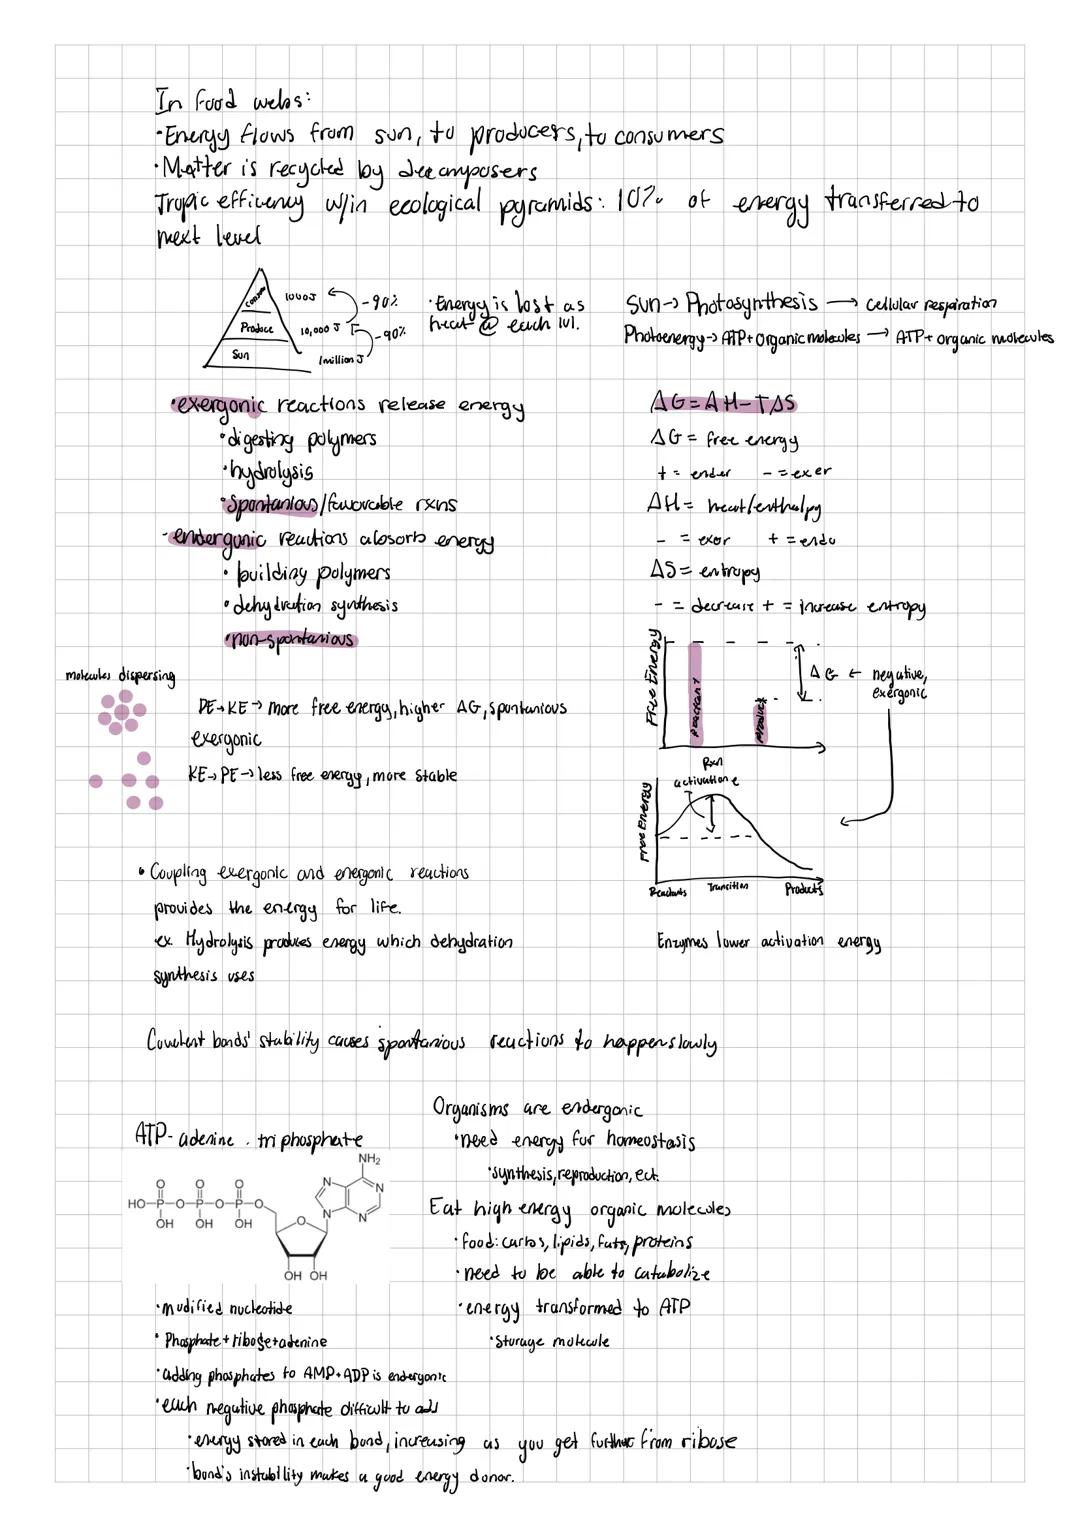 In food webs:
·Energy flows from sun, to producers, to consumers
·Matter is recycled by decomposers
Tropic efficency w/in ecological pyramids: 10% of energy transferred to
next level
1000J
-90%
Produce
10,000 J
-90%
Sun
1million J
·Energy is lost as
heat @ each lvl.
Sun→ Photosynthesis → cellular respiration
Photoenergy→ ATP+Organic molecules → ATP+ organic molecules
·exergonic reactions release energy
·digesting polymers
·hydrolysis
·Spontanious/favorable rxns
-endergonic reactions absorb energy
·building polymers
·dehydration synthesis
·non-spontanious
ΔG=ΔH-TΔS
ΔG= free energy
+ = ender - = exer
ΔH= heat/enthalpy
- = exor + = endo
ΔS= entropy
- = decrease + = increase entropy
molecules dispersing
PE→KE→ more free energy, higher ΔG, spontanious
exergonic
KE→PE→ less free energy, more stable
Free Energy
Reactant
Product
ΔG ← negative,
exergonic
Rxn
activation e
Free Energy
Reactants Transition Products
Enzymes lower activation energy
·Coupling exergonic and energonic reactions
provides the energy for life.
ex. Hydrolysis produces energy which dehydration
synthesis uses
Covalent bonds' stability causes spontanious reactions to happen slowly
ATP- adenine . tri phosphate
NH₂
N
N
N
N
O O O
HO-P-O-P-O-P-O
OH OH OH
O
OH OH
·modified nucleotide
·Phosphate+ribose+adenine
·adding phosphates to AMP+ADP is endergonic
·each negative phosphate difficult to add
·energy stored in each bond, increasing as you get further from ribose
·bond's instability makes a good energy donor.
Organisms are endergonic
·need energy for homeostasis
·synthesis, reproduction, ect.
Eat high energy organic molecules
·food: carbs, lipids, fats, proteins
·need to be able to catabolize
·energy transformed to ATP
·Storage molecule